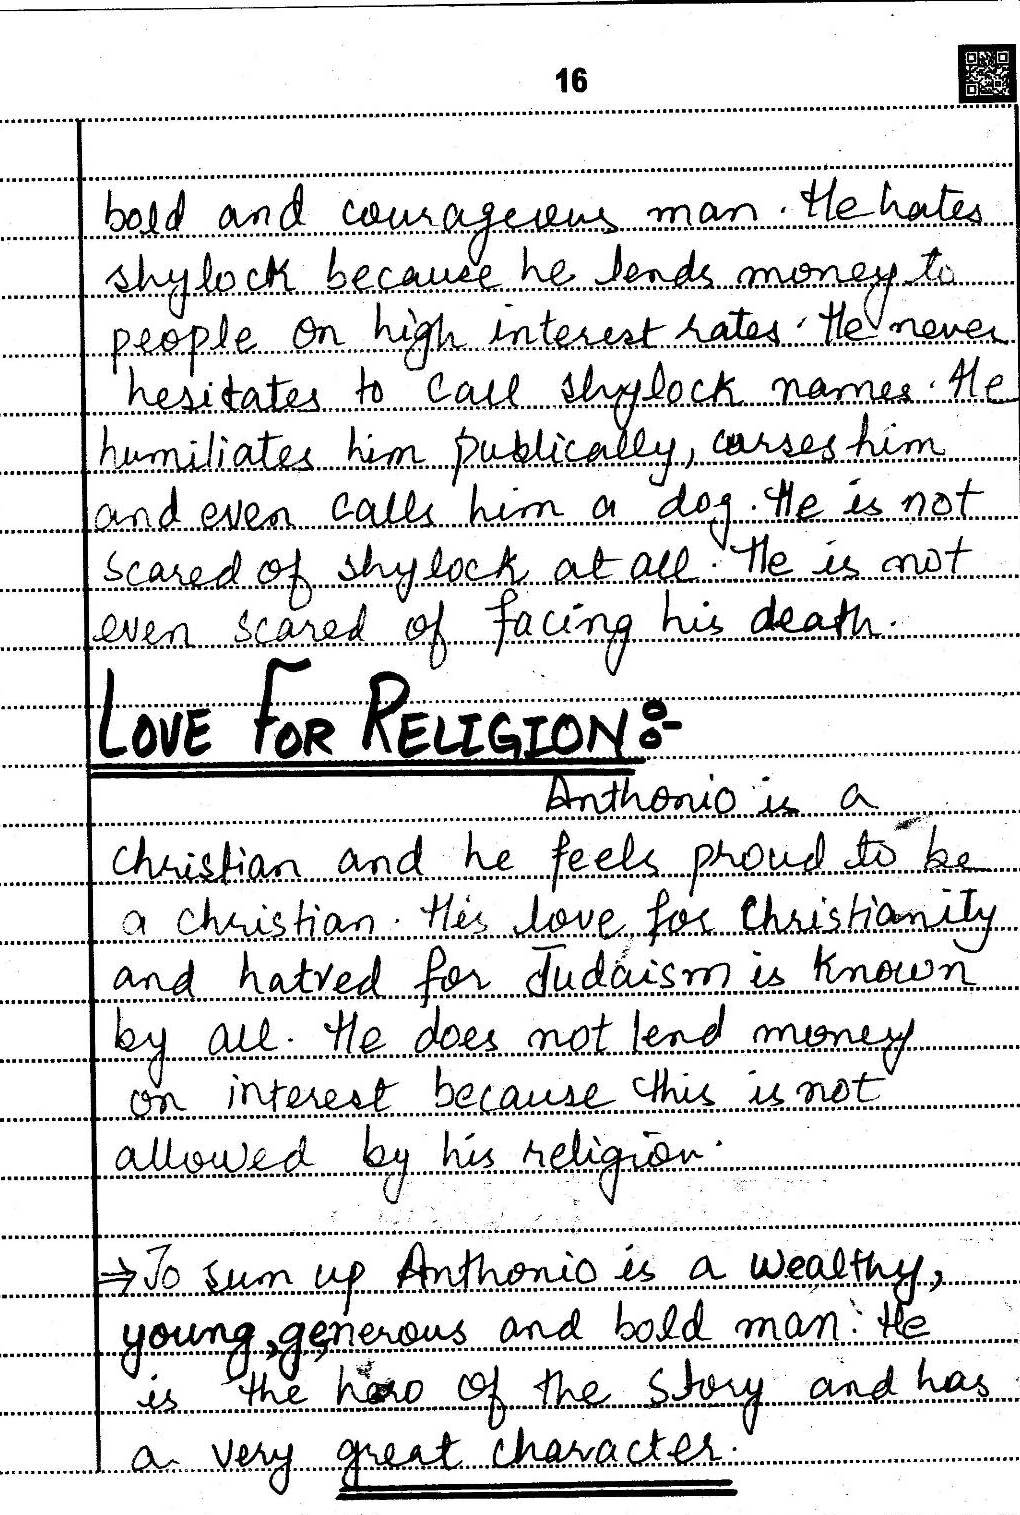 16
bold and courageous man. He hates
shylock because he lends money to
people on high interest rates. He never
hesitates to call shylock names. He
humiliates him publically, curses him
and even calls him a dog. He is not
scared of shylock at all. He is not
even scared of facing his death.
LOVE FOR RELIGION:-
Anthonio is a
christian and he feels proud to be
a christian. His love for Christianity
and hatred for Judaism is known
by all. He does not lend money
on interest because this is not
allowed by his religion.
⇒ To sum up Anthonio is a wealthy,
young, generous and bold man. He
is the hero of the story and has
a very great character.